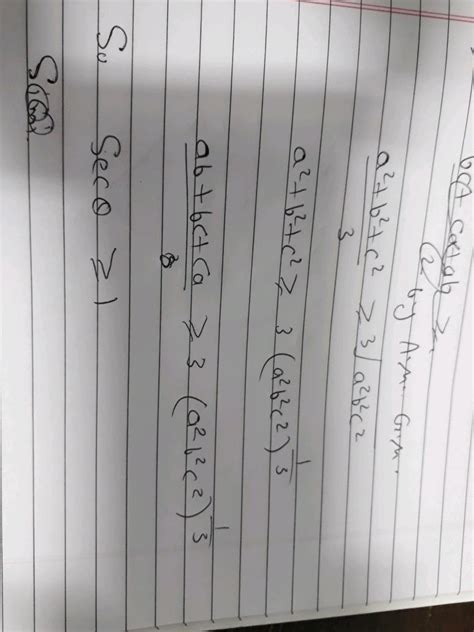 bc + ca + ab ≥
(2) by A.m. G.m.
a² + b² + c² / 3 ≥ ³√a²b²c²
a² + b² + c² ≥ 3 (a²b²c²)^1/3
ab + bc + ca / 3 ≥ 3 (a²b²c²)^1/3
So Sec θ ≥ 1